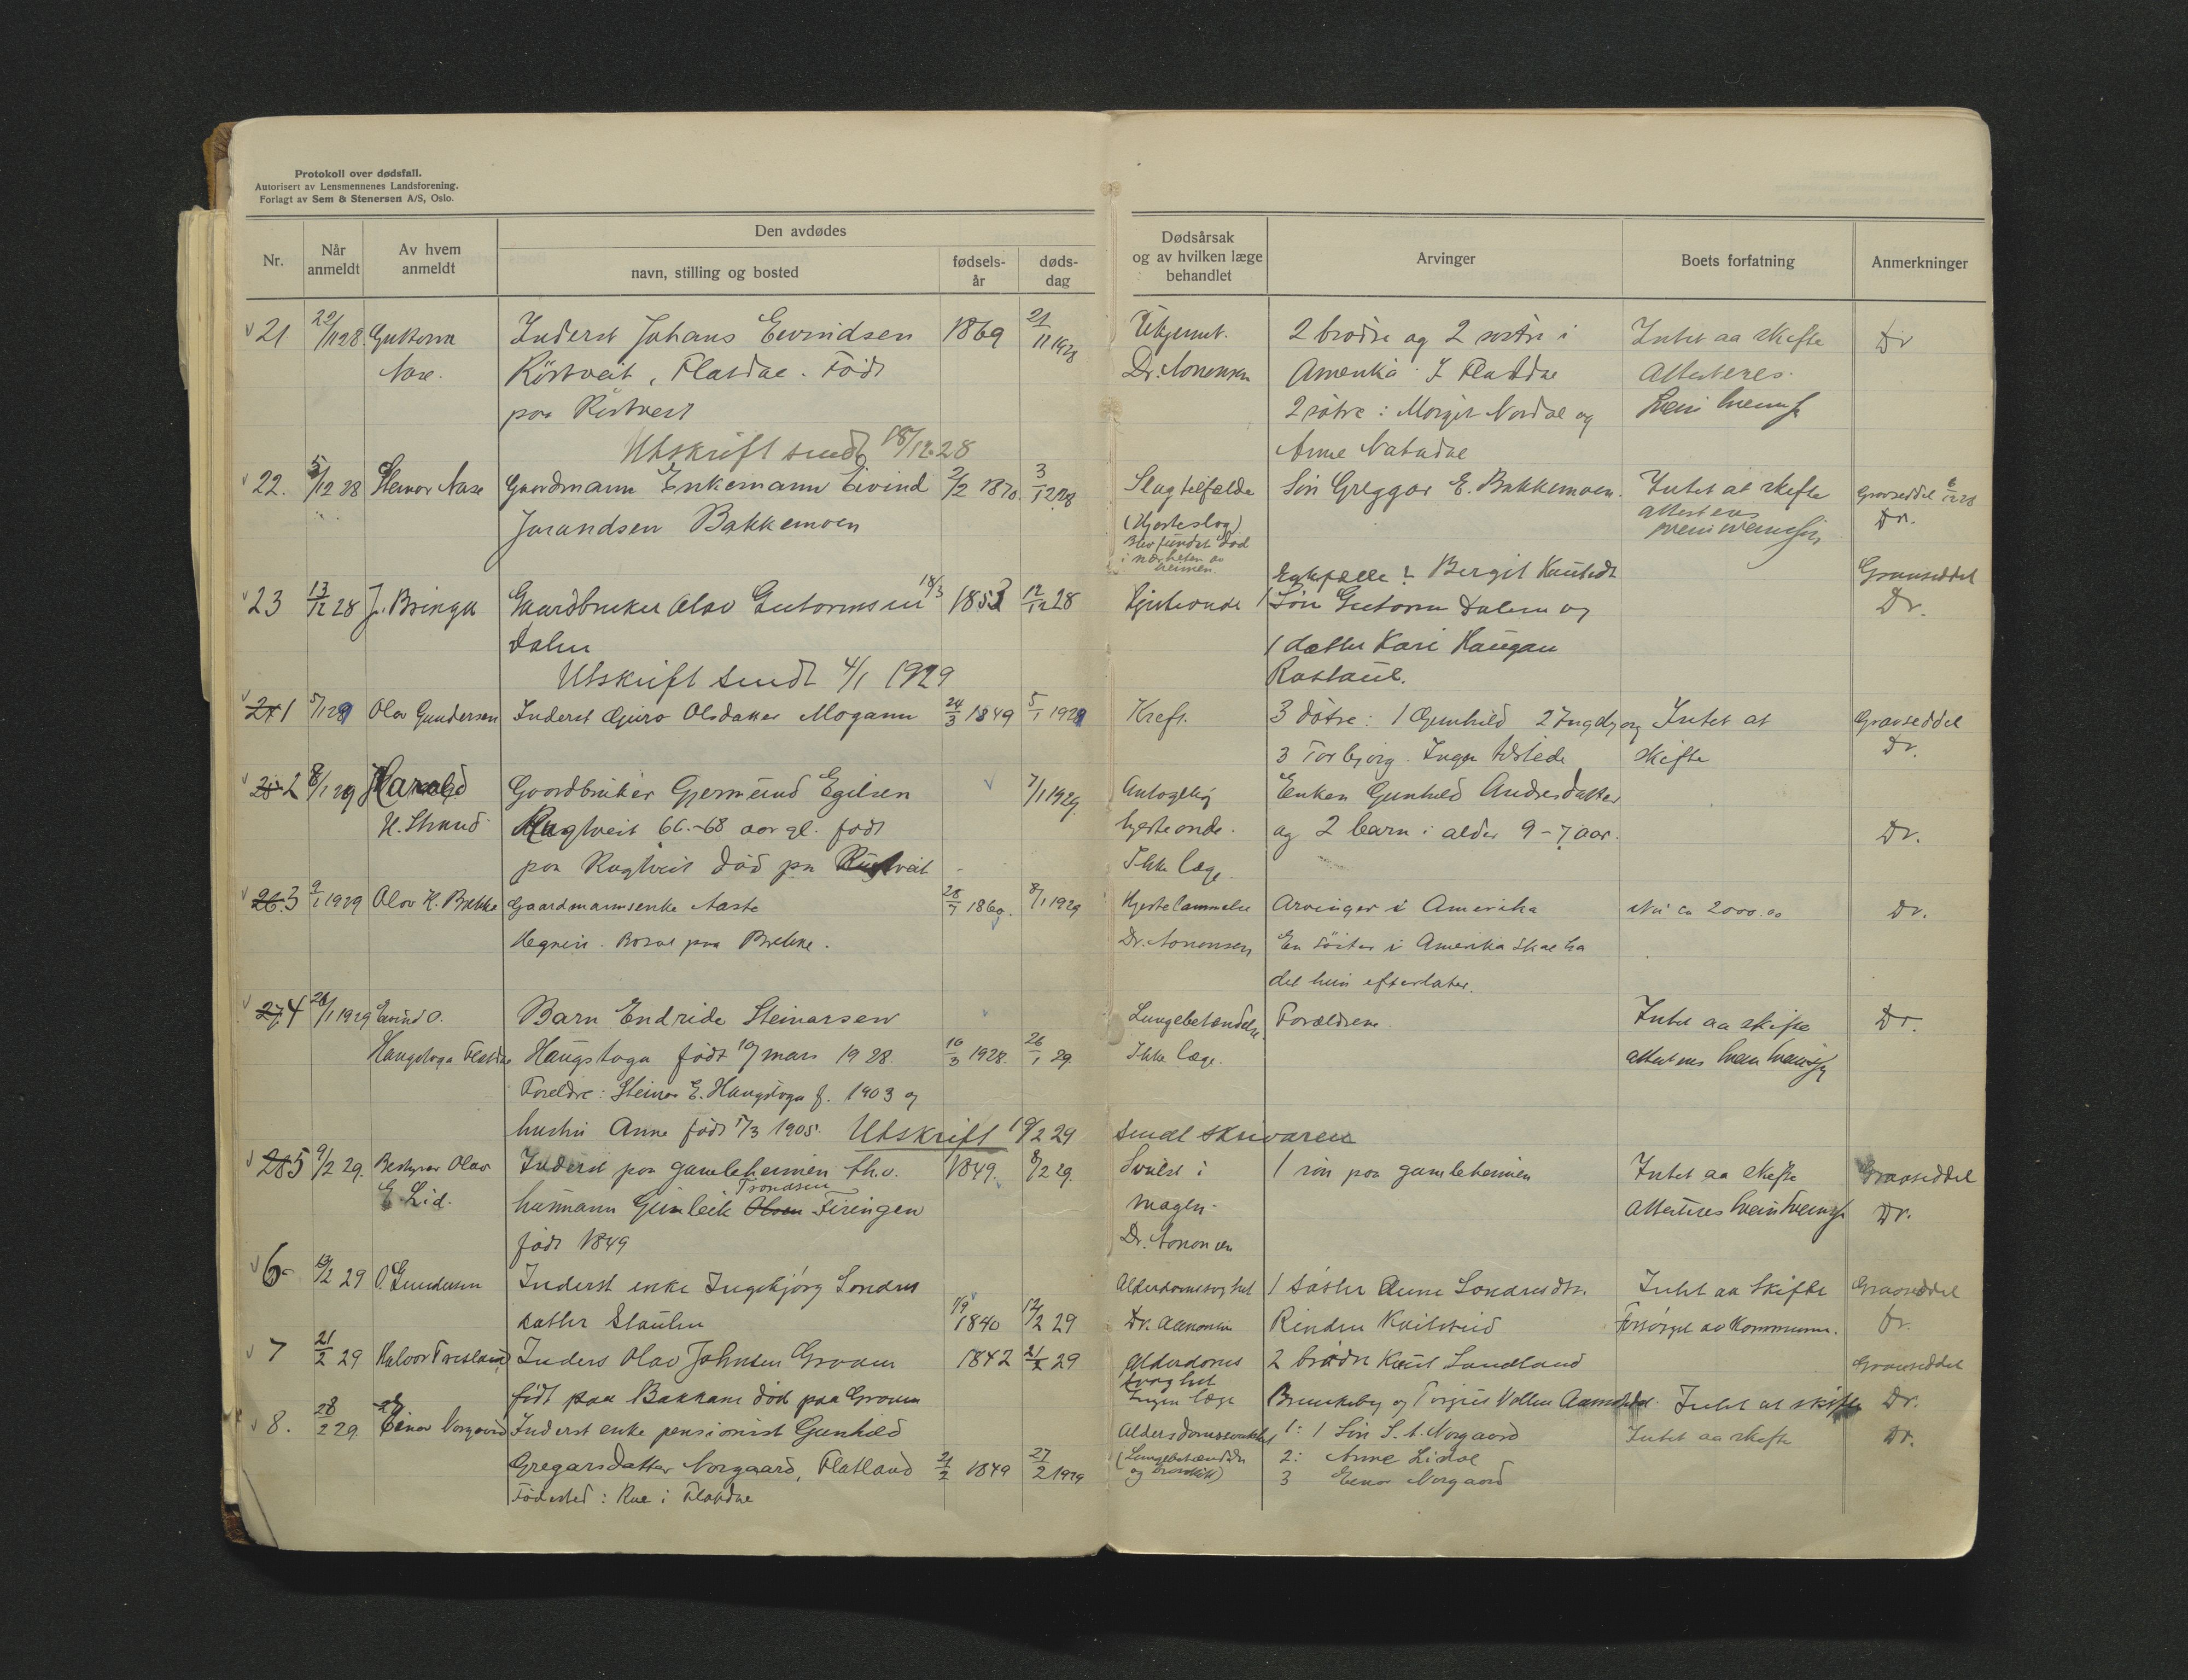 Protokoll over dødsfall.
Autorisert av Lensmennenes Landsforening.
Forlagt av Sem & Stenersen A/S, Oslo.
Nr.
Når anmeldt
Av hvem anmeldt
Den avdødes
navn, stilling og bosted
fødsels-år
døds-dag
Dødsårsak og av hvilken læge behandlet
Arvinger
Boets forfatning
Anmerkninger
21 22/11 28 Guttorm Inderst Johans Eivindsen 1869 21/11 1928 Ukjent. 2 brødre og 2 søstre i Intet aa skifte Dr
Nase. Rörtveit, Flatdal. Född Dr. Aanonsen Amerika I Flatdal Attesteres
paa Rörtveit 2 søtre: Margit Nordal og
Utskrift sendt 18/12 28 Anne Natadal
22. 5/12 28 Steinar Nase Gaardmann Enkemann Eivind 2/2 1870 3/12 28 Slagtelfælde Sön Greggar E. Bakkemoen. Intet at skifte Gravseddel 6/12 28
Jorandsen Bakkemoen (Hjerteslag) attesteres Dr.
Blev fundet död
i nærheten av
heimen.
Ektefælle: Bergit Gravseddel
23 13/12 28 J. Bringa Gaardbruker Olav Gutormsen 18/3 1853 12/12 28 Hjerteonde 1 Sön Gutorm Dalen og Dr.
Dalen 1 datter Kari Haugan
Utskrift sendt 4/1 1929 Rastaul.
24 1 5/1 29 Olav Gundersen Inderst Gjuro Olsdatter Mogann 24/3 1849 5/1 1929 Kreft. 3 døtre: 1 Gunhild 2 Ingebjorg Intet at Gravseddel
3 Torbjörg. Inga tilstede skifte Dr.
25 2 8/1 29 Harald Gaardbruker Gjermund Egilsen 7/1 1929 Antagelig Enken Gunhild Andresdatter
H. Strand Rugtveit 66-68 aar gl. født hjerteonde. og 2 barn i alder 9-7 aar. Dr.
paa Rugtveit död pa Rugtveit Ikke læge.
26. 3 9/1 1929 Olav K. Bakke Gaardmannsenke Aaste 28/7 1860. 8/1 1929 Hjertelammelse Arvinger i Amerika ca 2000.00 Dr.
Hegnin. Bosat paa Dr. Aanonsen En söster i Amerika skal ha
det hun efterlater.
27 4 26/1 1929 Eivind O. Barn Endride Steinarsen Lungebetændelse Forældrene. Intet aa skifte Dr.
Haugstoga Flatdal Haugstoga født 10/mars 1928. 10/3 1928. 26/1 29. Ikke læge. attesteres
Foreldre: Steinar E. Haugstoga f. 1903 og
hustru Anne født 1905. Utskrift 19/2 29 sendt skrivaren
28 5 9/2 29. Bestyrer Olav Inderst paa gamleheimen fh.v. 1849. 8/2 29. Svulst i 1 sön paa gamleheimen Intet aa skifte Gravseddel
E. Lid. husmann Gunleik Olsen Trondsen Firingen magen. Attesteres Dr.
født 1849 Dr. Aanonsen
6 29 O. Gundersen Inderst enke Ingebjörg Sondres Alderdomssvaghet 1 datter Anne Sondresdtr. Intet aa skifte Gravseddel
datter Staulen 1/9 1840 12/2 29 Dr. Aanonsen Rinden Kviteseid Forsörget av Kommunen. Dr.
7 21/2 29 Halvor Inders Olav Johnsen Groven 1842 21/2 29 Alderdoms 2 brødre Knut Sundland Gravseddel
født paa Bakkane död paa Groven svaghet Brunkeberg og Torgrus Vollen Aamotsdal. Intet at skifte Dr.
Ingen læge
8. 28/2 29. Einar Norgaard Inderst enke pensionist Gunhild Aldersdomssvakhet 1: 1 Sön S. A. Norgaard Intet aa skifte Dr.
Gregarsdatter Norgaard, Flatland 21/2 1849 27/2 1929 (Lungebetændelse 2: Anne Lidal
Födested: Rue i Flatdal 3 Einar Norgaard